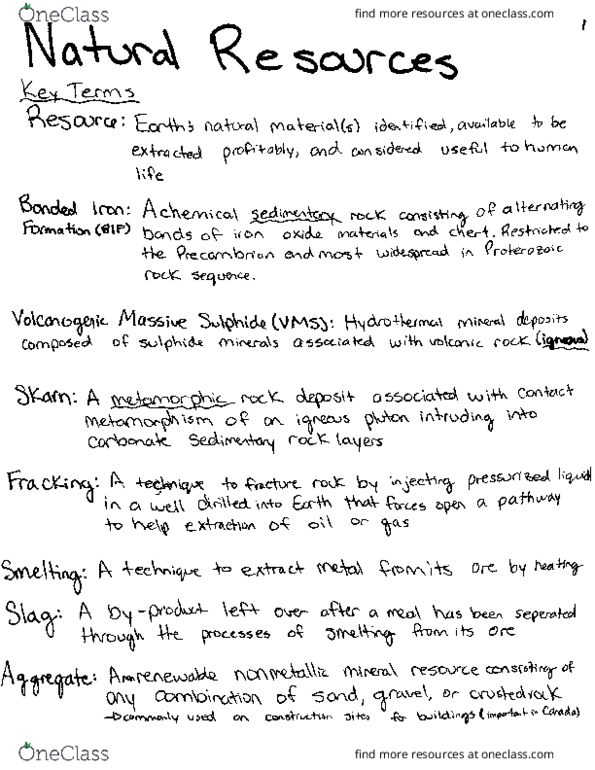 OneClass
find more resources at oneclass.com
1
Natural Resources
Key Terms
Resource: Earth's natural material(s) identified, available to be
extracted profitably, and considered useful to human
life
Banded Iron: A chemical sedimentary rock consisting of alternating
Formation (BIF) bands of iron oxide materials and chert. Restricted to
the Precambrian and most widespread in Proterozoic
rock sequence.
Volcanogenic Massive Sulphide (VMS): Hydrothermal mineral deposits
composed of sulphide minerals associated with volcanic rock (igneous)
Skarn: A metamorphic rock deposit associated with contact
metamorphism of an igneous pluton intruding into
carbonate sedimentary rock layers
Fracking: A technique to fracture rock by injecting pressurized liquid
in a well drilled into Earth that forces open a pathway
to help extraction of oil or gas
Smelting: A technique to extract metal from its ore by heating
Slag: A by-product left over after a meal has been seperated
through the processes of smelting from its ore
Aggregate: A nonrenewable nonmetallic mineral resource consisting of
any combination of sand, gravel, or crusted rock
→ commonly used on construction sites for buildings (important in Canada)
OneClass
find more resources at oneclass.com